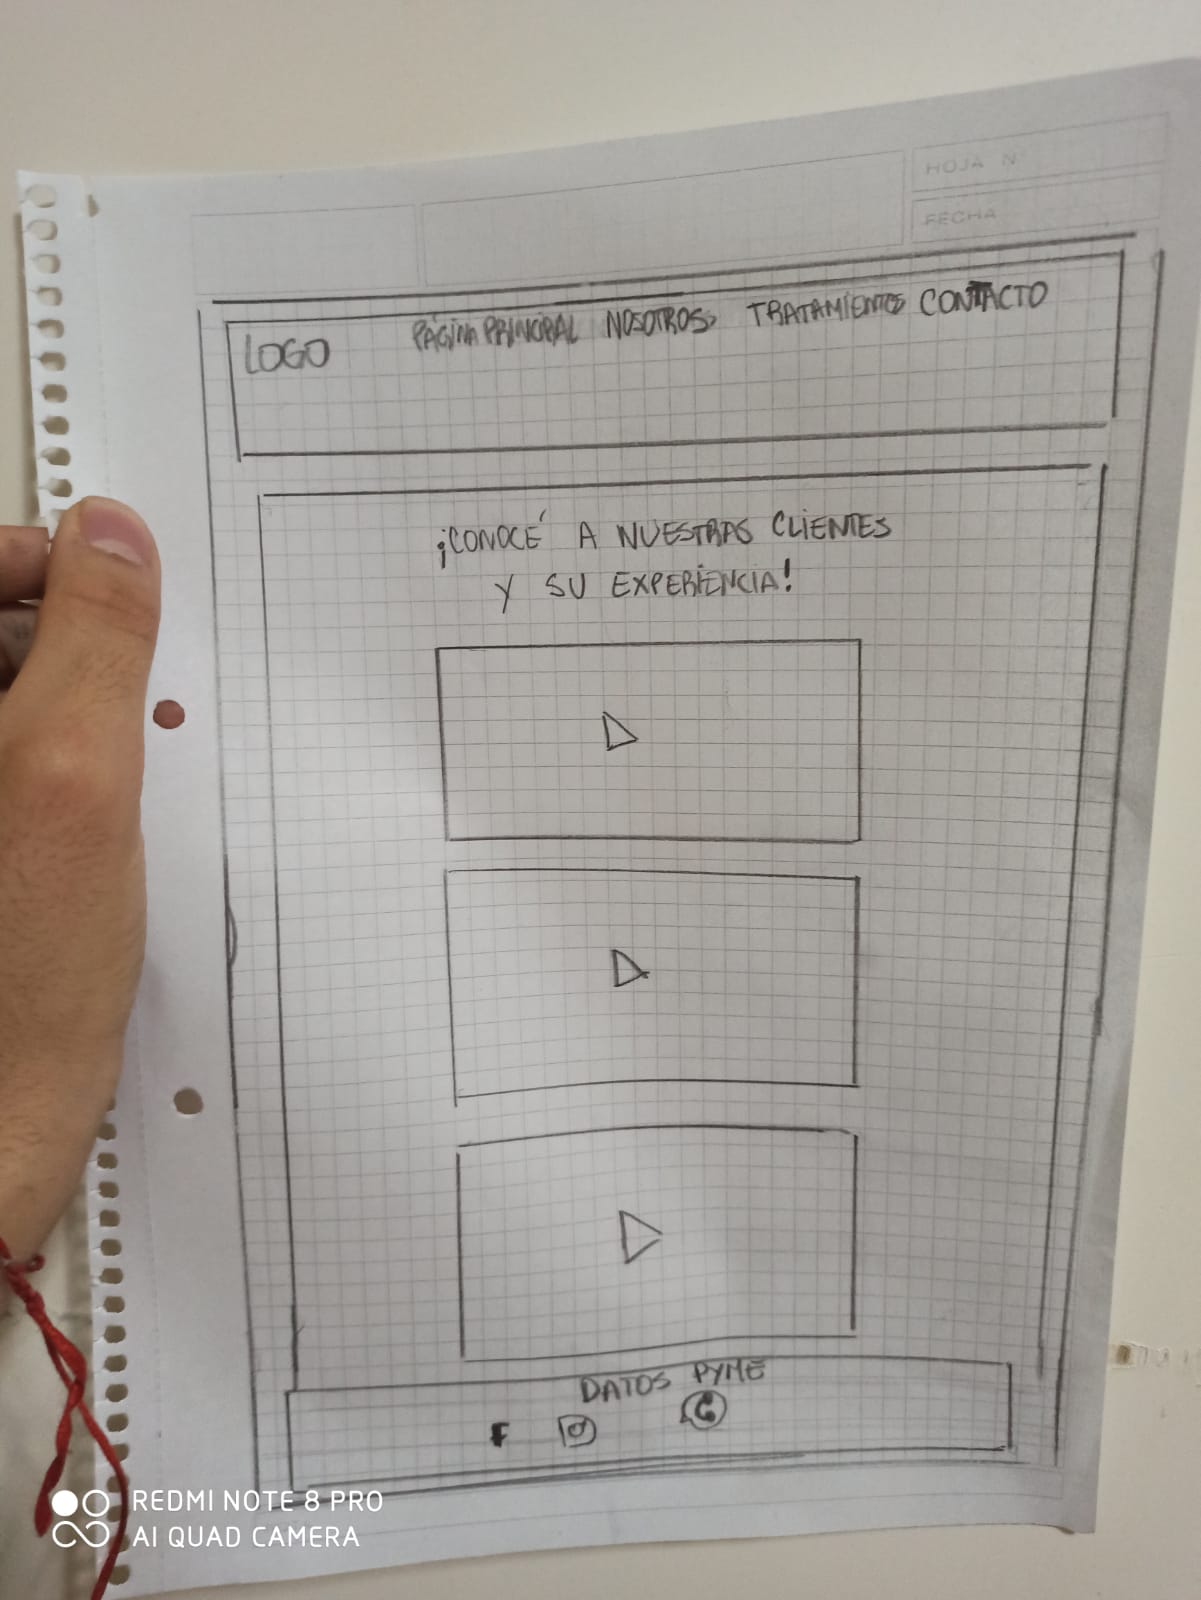 HOJA N°
FECHA
LOGO PÁGINA PRINCIPAL NOSOTROS TRATAMIENTOS CONTACTO
¡CONOCÉ A NUESTRAS CLIENTES
Y SU EXPERIENCIA!
DATOS PYME
F
REDMI NOTE 8 PRO
AI QUAD CAMERA